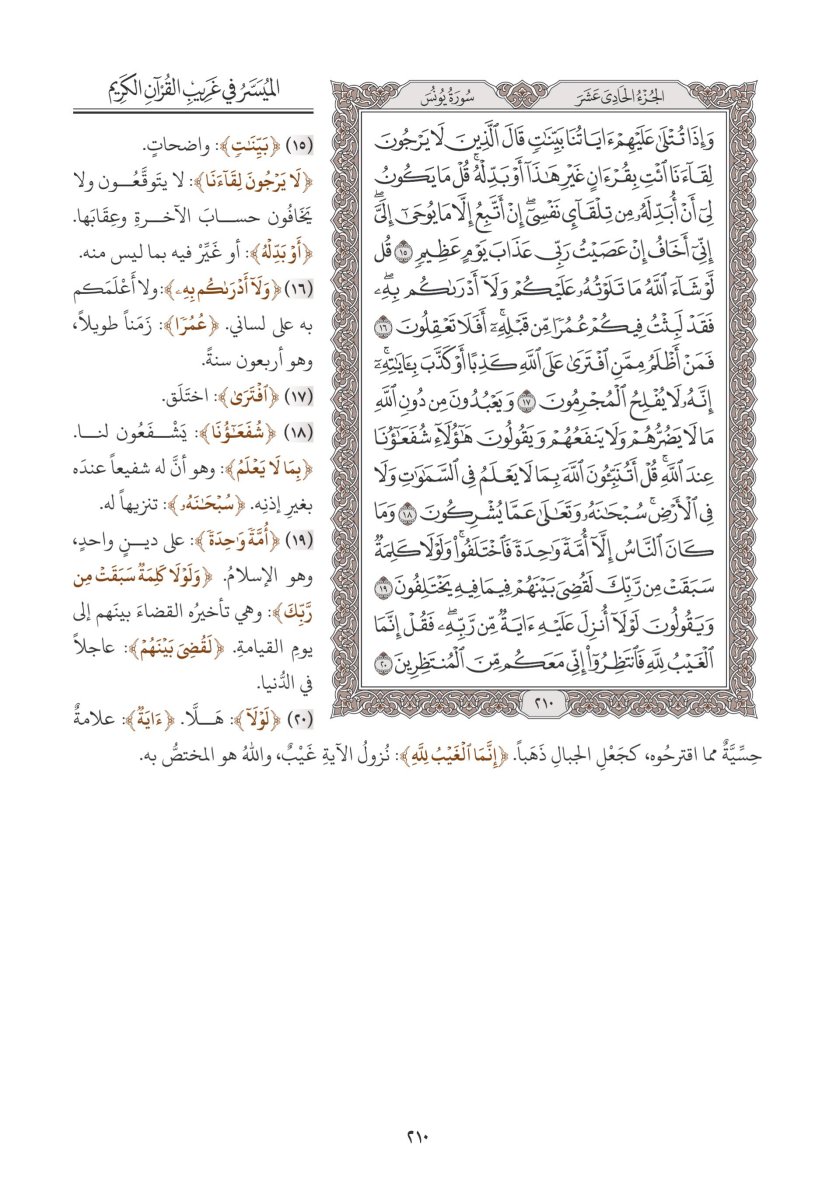 الميسر في غريب القرآن الكريم
الجزء الحادي عشر
سورة يونس
وَإِذَا تُتْلَىٰ عَلَيْهِمْ ءَايَاتُنَا بَيِّنَٰتٍ قَالَ ٱلَّذِينَ لَا يَرْجُونَ
لِقَآءَنَا ٱئْتِ بِقُرْءَانٍ غَيْرِ هَٰذَآ أَوْ بَدِّلْهُ ۚ قُلْ مَا يَكُونُ
لِىٓ أَنْ أُبَدِّلَهُۥ مِن تِلْقَآئِ نَفْسِىٓ ۖ إِنْ أَتَّبِعُ إِلَّا مَا يُوحَىٰٓ إِلَىَّ ۖ
إِنِّىٓ أَخَافُ إِنْ عَصَيْتُ رَبِّى عَذَابَ يَوْمٍ عَظِيمٍ ١٥ قُل
لَّوْ شَآءَ ٱللَّهُ مَا تَلَوْتُهُۥ عَلَيْكُمْ وَلَآ أَدْرَىٰكُم بِهِۦ ۖ
فَقَدْ لَبِثْتُ فِيكُمْ عُمُرًا مِّن قَبْلِهِۦٓ ۚ أَفَلَا تَعْقِلُونَ ١٦
فَمَنْ أَظْلَمُ مِمَّنِ ٱفْتَرَىٰ عَلَى ٱللَّهِ كَذِبًا أَوْ كَذَّبَ بِـَٔايَٰتِهِۦٓ ۚ
إِنَّهُۥ لَا يُفْلِحُ ٱلْمُجْرِمُونَ ١٧ وَيَعْبُدُونَ مِن دُونِ ٱللَّهِ
مَا لَا يَضُرُّهُمْ وَلَا يَنفَعُهُمْ وَيَقُولُونَ هَٰٓؤُلَآءِ شُفَعَٰٓؤُنَا
عِندَ ٱللَّهِ ۚ قُلْ أَتُنَبِّـُٔونَ ٱللَّهَ بِمَا لَا يَعْلَمُ فِى ٱلسَّمَٰوَٰتِ وَلَا
فِى ٱلْأَرْضِ ۚ سُبْحَٰنَهُۥ وَتَعَٰلَىٰ عَمَّا يُشْرِكُونَ ١٨ وَمَا
كَانَ ٱلنَّاسُ إِلَّآ أُمَّةً وَٰحِدَةً فَٱخْتَلَفُوا۟ ۚ وَلَوْلَا كَلِمَةٌ
سَبَقَتْ مِن رَّبِّكَ لَقُضِىَ بَيْنَهُمْ فِيمَا فِيهِ يَخْتَلِفُونَ ١٩
وَيَقُولُونَ لَوْلَآ أُنزِلَ عَلَيْهِ ءَايَةٌ مِّن رَّبِّهِۦ ۖ فَقُلْ إِنَّمَا
ٱلْغَيْبُ لِلَّهِ فَٱنتَظِرُوٓا۟ إِنِّى مَعَكُم مِّنَ ٱلْمُنتَظِرِينَ ٢٠
٢١٠
(١٥) ﴿بَيِّنَٰتٍ﴾: واضحاتٍ.
﴿لَا يَرْجُونَ لِقَآءَنَا﴾: لا يتوقَّعون ولا
يَخَافُون حسابَ الآخرةِ وعِقَابَها.
﴿أَوْ بَدِّلْهُ﴾: أو غَيِّرْ فيه بما ليس منه.
(١٦) ﴿وَلَآ أَدْرَىٰكُم بِهِۦ﴾: ولا أَعْلَمَكم
به على لساني. ﴿عُمُرًا﴾: زمَناً طويلاً،
وهو أربعون سنةً.
(١٧) ﴿ٱفْتَرَىٰ﴾: اختَلَق.
(١٨) ﴿شُفَعَٰٓؤُنَا﴾: يَشْفَعُون لنا.
﴿بِمَا لَا يَعْلَمُ﴾: وهو أنَّ له شفيعاً عندَه
بغيرِ إذنِه. ﴿سُبْحَٰنَهُۥ﴾: تنزيهاً له.
(١٩) ﴿أُمَّةً وَٰحِدَةً﴾: على دينٍ واحدٍ،
وهو الإسلامُ. ﴿وَلَوْلَا كَلِمَةٌ سَبَقَتْ مِن
رَّبِّكَ﴾: وهي تأخيرُه القضاءَ بينَهم إلى
يومِ القيامةِ. ﴿لَقُضِىَ بَيْنَهُمْ﴾: عاجلاً
في الدُّنيا.
(٢٠) ﴿لَوْلَآ﴾: هَلَّا. ﴿ءَايَةٌ﴾: علامةٌ
حِسِّيَّةٌ مما اقترحُوه، كجَعْلِ الجبالِ ذَهَباً. ﴿إِنَّمَا ٱلْغَيْبُ لِلَّهِ﴾: نُزولُ الآيةِ غَيْبٌ، واللهُ هو المختصُّ به.
٢١٠